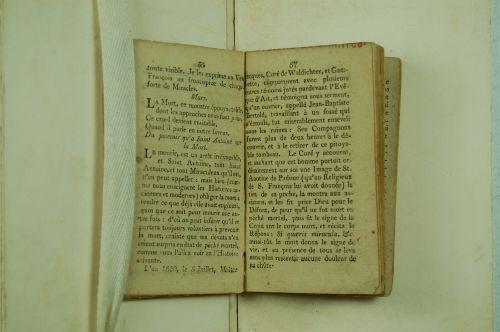 56
toute visible. Je les exprime en Vers
François au frontispice de chaque
sorte de Miracles.
Mort.
LA Mort, ce monstre épouvantable,
dont les approches sont
Ce cruel devient
Quand il parle en notre
Du pouvoir qu'a Saint Antoine sur
la Mort.
LA mourir, est un arrêt irrévocable,
et Saint Antoine, tout Saint
Antoine, et tout Miraculeux qu'il est,
n'en peut appeller : mais bien
nous enseignent les Histoires
anciennes et modernes) obliger la mort à
rendre ce que déjà elle avoit englouti,
quoi que ce soit pour mourir une autre
fois : d'où on peut inférer qu'il
portera toujours volontiers à prévenir
la mort, crainte que ses dévots n'en
soient surpris en état de péché mortel,
comme vous l'allez voir en l'Histoire
suivante.
L'an 1680, le 5 Juillet, Maître
57
Jacques, Curé de Waldichter, et
comparurent avec plusieurs
autres témoins jurés pardevant l'Evê-
que d'Ast, et témoigna sous serment,
qu'un ouvrier, appellé Jean-Baptiste
Bertold, travaillant à un fossé qui
s'éboula, fut misérablement enseveli
sous les ruines : Ses Compagnons
furent plus de deux heures à le dé-
couvrir, et à le retirer de ce pitoya-
ble tombeau. Le Curé y accourut,
et sachant que cet homme portoit or-
dinairement sur soi une Image de St.
Antoine de Padoue (qu'un Religieux
de S. François lui avoit donnée) la
tira de sa poche, la montra aux as-
sistans, et les fit prier Dieu pour le
Défunt, de peur qu'il ne fut mort en
péché mortel, puis fit le signe de la
Croix sur le corps mort, et récita le
Répons : Si quæris miracula, &c.
aussi-tôt le mort donna le signe de
vie, et en présence de tous se leva
sans plus ressentir aucune douleur de
sa chûte.